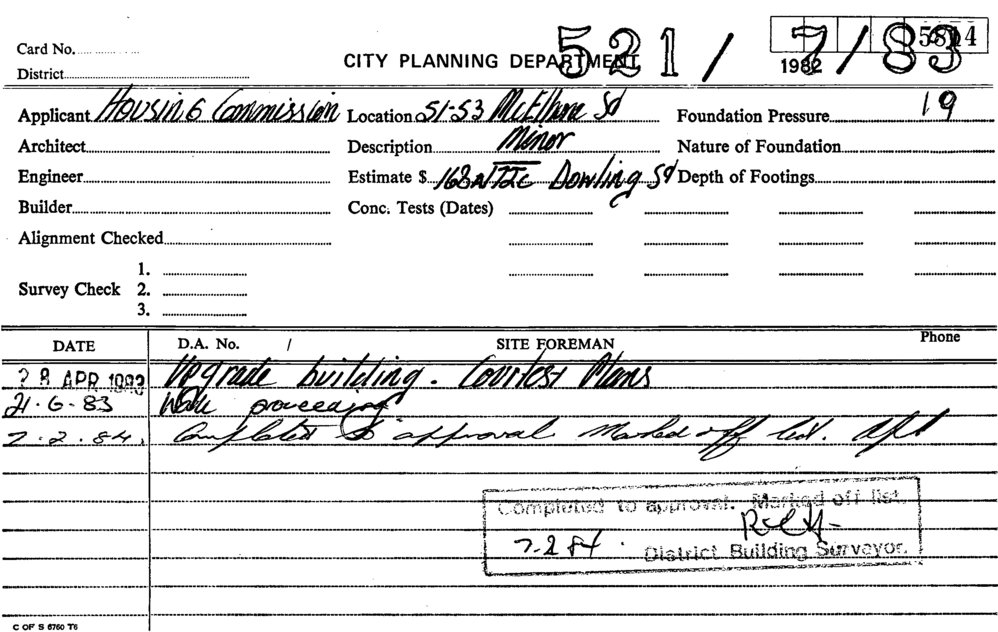 Card No.
CITY PLANNING DEPARTMENT
521/7/83
5814
1982
District
Applicant Housing Commission
Location 51-53 McElhone St
Foundation Pressure 19
Architect
Description Minor
Nature of Foundation
Engineer
Estimate $ 168 Dowling St
Depth of Footings
Builder
Conc. Tests (Dates)
Alignment Checked
1.
Survey Check 2.
3.
DATE D.A. No. / SITE FOREMAN Phone
28 APR 1983 Upgrade building. Courtesy Plans
21.6.83 Work proceeding
7.2.84. Completed to approval Marked off list.
Completed to approval. Marked off list.
7.2.84.
District Building Surveyor.
C OF S 6760 T6